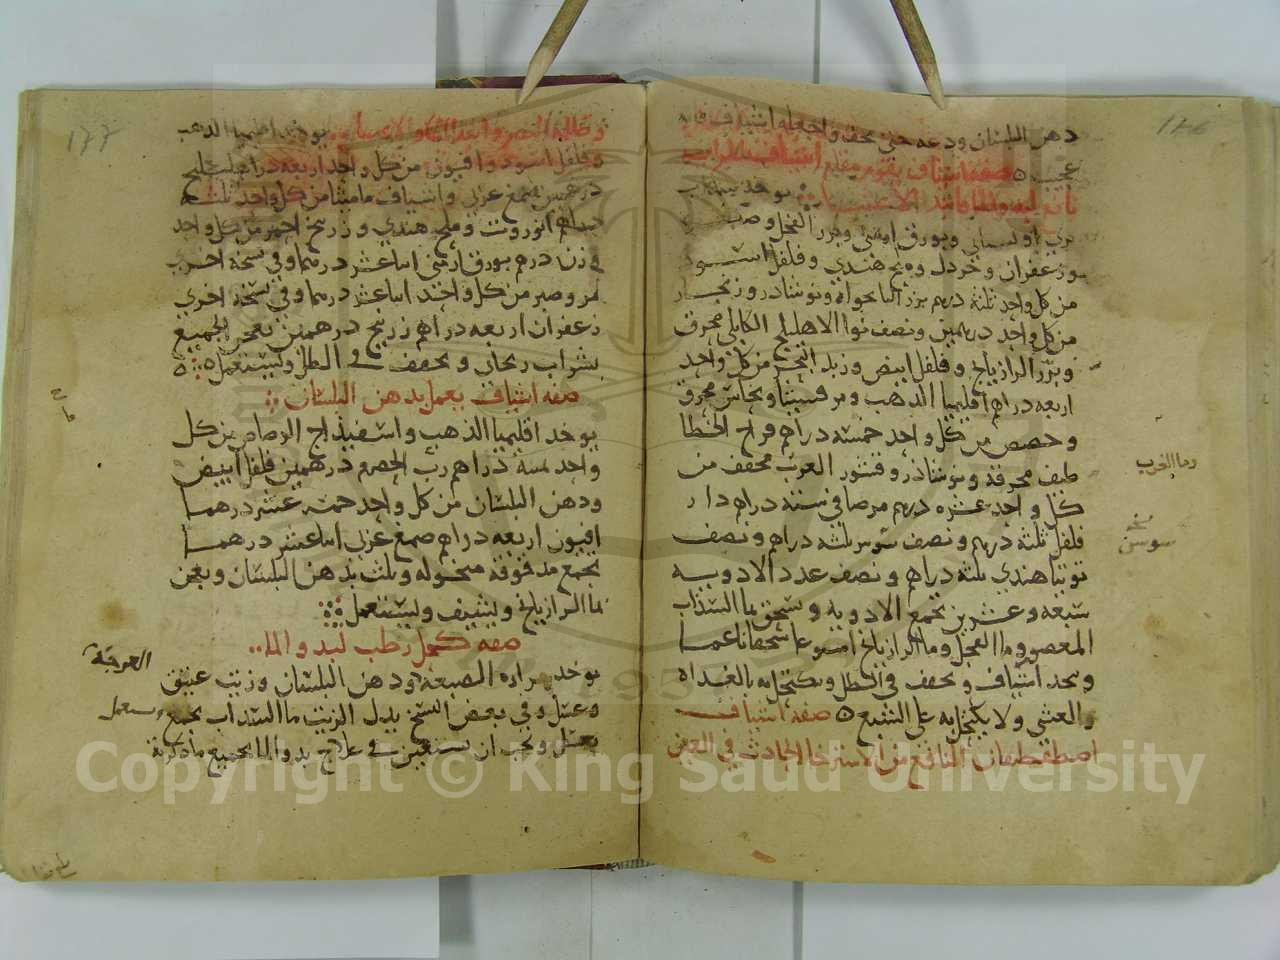 ١٧٦
دهن البلسان ودعه حتى يجف واجعله اشياف فانه
عجيب ٥ صفة اشياف يقوم مقام اشياف المرارات
نافع لبدو الما ولبد الانتشار يوخذ
وبورق ارمني وبزر الفجل وصبر
وزعفران وخردل وملح هندي وفلفل اسود
من كل واحد ثلثة دريهم بزر النانخواه ونوشادر وزنجار
من كل واحد درهمين ونصف نوا الاهليلج الكابلي محرق
وبزر الرازيانج وفلفل ابيض وزبد البحر من كل واحد
اربعه دراهم اقليميا الذهب ومرقشيثا ونحاس محرق
وحضض من كل واحد خمسه دراهم فراخ الخطا
طيف محرقة ونوشاذر وقشور الغرب مجفف من
كل واحد عشره دريهم مر صافي ستة دراهم دار
فلفل ثلثة دريهم ونصف سوس ثلثه دراهم ونصف
توتيا هندي ثلثة دراهم ونصف عدد الادويه
سبعه وعشرين تجمع الادويه وتسحق بما السذاب
المعصور وما الفجل وما الرازيانج اسبوعا سحقا ناعما
ويتخذ اشياف ويجفف في الظل ويكتحل به بالغداه
والعشي ولا يكتحل به على الشبع ٥ صفة اشياف
اصطفطيقان النافع من الاسترخا الحادث في العين
وما الغرب
نسخه
سوسن
١٧٧
وظلمة البصر وابتدا الما والانتشار يوخذ اقليميا الذهب
وفلفل اسود وافيون من كل واحد اربعه دراهم
صمغ عربي واشياف ماميثا من كل واحد ثلثة
دراهم انزروت وملح هندي وزرنيخ احمر من كل واحد
وزن درهم بورق ارمني اثنا عشر درهما وفي نسخة اخرى
مر وصبر من كل واحد اثنا عشر درهما وفي نسخة اخرى
زعفران اربعه دراهم زرنيخ درهمين يعجن الجميع
بشراب ريحاني ويجفف في الظل ويستعمل ٥
صفه اشياف يعمل بدهن البلسان
يوخذ اقليميا الذهب واسفيذاج الرصاص من كل
واحد ثمنية دراهم رب الحصرم درهمين فلفل ابيض
ودهن البلسان من كل واحد خمسة عشر درهما
افيون اربعه دراهم صمغ عربي اثنا عشر درهما
تجمع مدقوقة منخوله وتلت بدهن البلسان ويعجن
بما الرازيانج ويشيف ويستعمل
صفه كحل رطب لبدو الما
يوخذ مراره الضبعة ودهن البلسان وزيت عتيق
وعسل وفي بعض النسخ بدل الزيت ما السذاب تجمع
بعسل ويجب ان يستعين في علاج بدو الما بجميع ما ذكرته
العرجة
ويستعمل